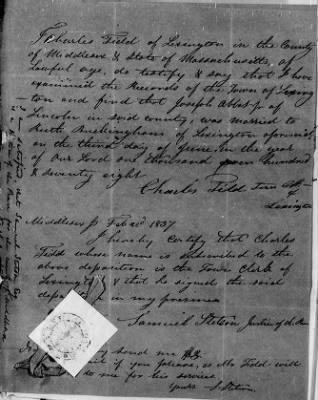 I Charles Tidd of Lexington in the County
of Middlesex & State of Massachusetts, of
Lawful age, do testify & say that I have
examined the Records of the Town of Lexing
ton and find that Joseph Abbot Jr. of
Lincoln in said county, was married to
Ruth Buckingham of Lexington aforesaid,
on the third day of June in the year
of Our Lord one thousand seven hundred
& seventy eight
Charles Tidd Town
Lexington
Middlesex Ss Feb 1837
I hereby certify that Charles
Tidd whose name is subscribed to the
above deposition is the Town Clerk of
Lexington & that he signed the said
in my presence
Samuel Stetson Justice of
send me
if you please, as Mr Tidd will
to me for his services
Yours S Stetson
I am satisfied that Samuel Stetson Esq
is the